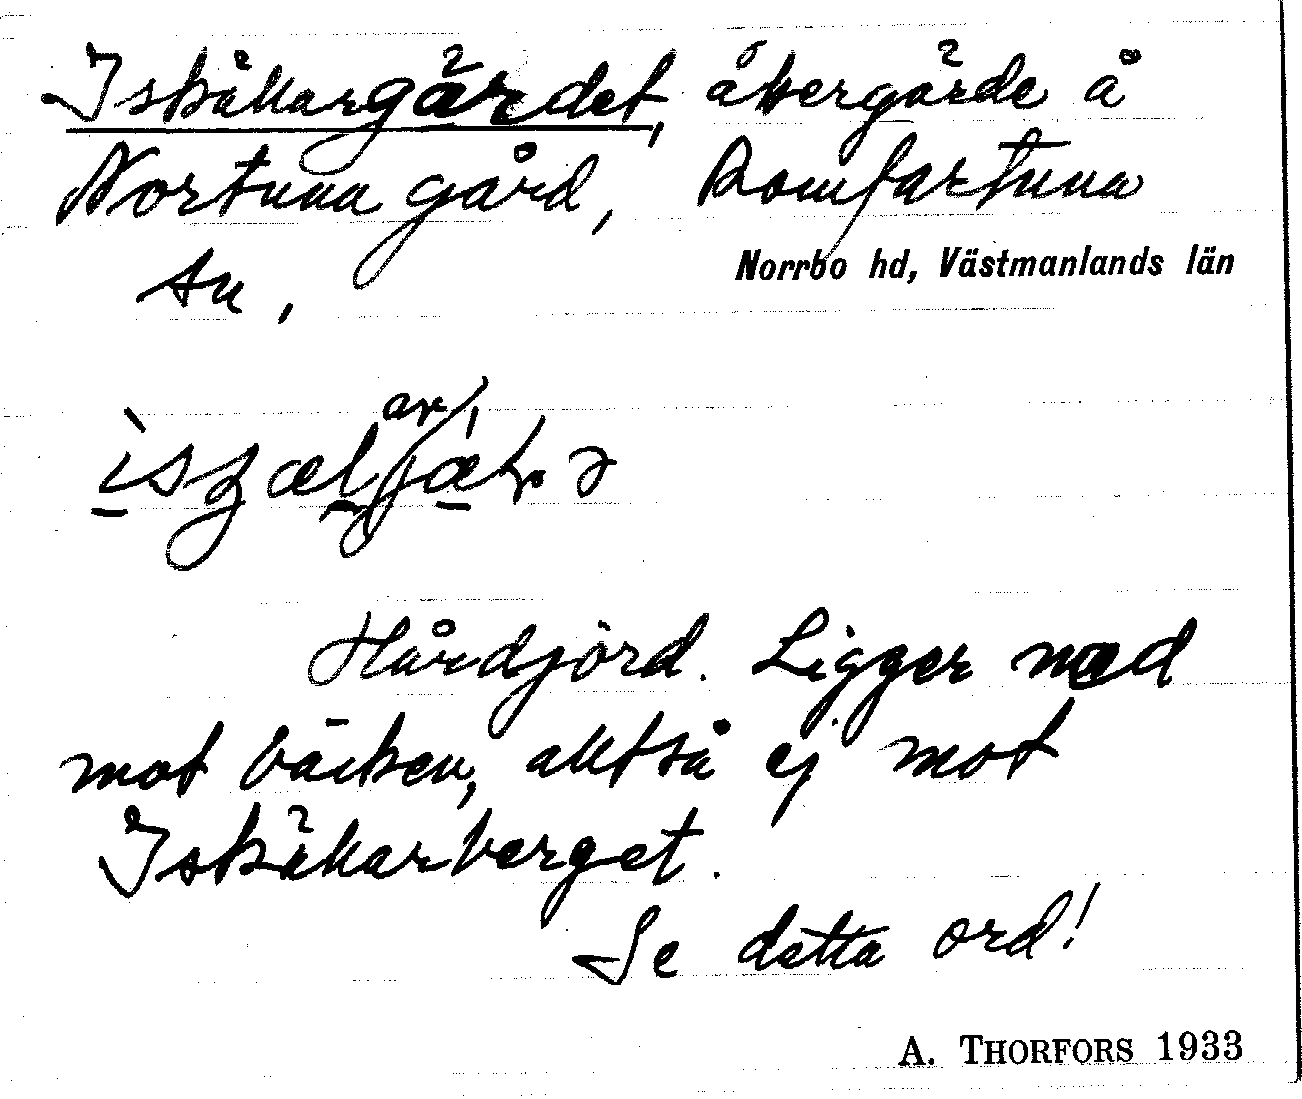 Iskällargärdet, åkergärde å
Nortuna gård, Romfartuna
sn,
Norrbo hd, Västmanlands län
Hårdjord. Ligger ned
mot bäcken, alltså ej mot
Iskällarberget.
Se detta ord!
A. THORFORS 1933